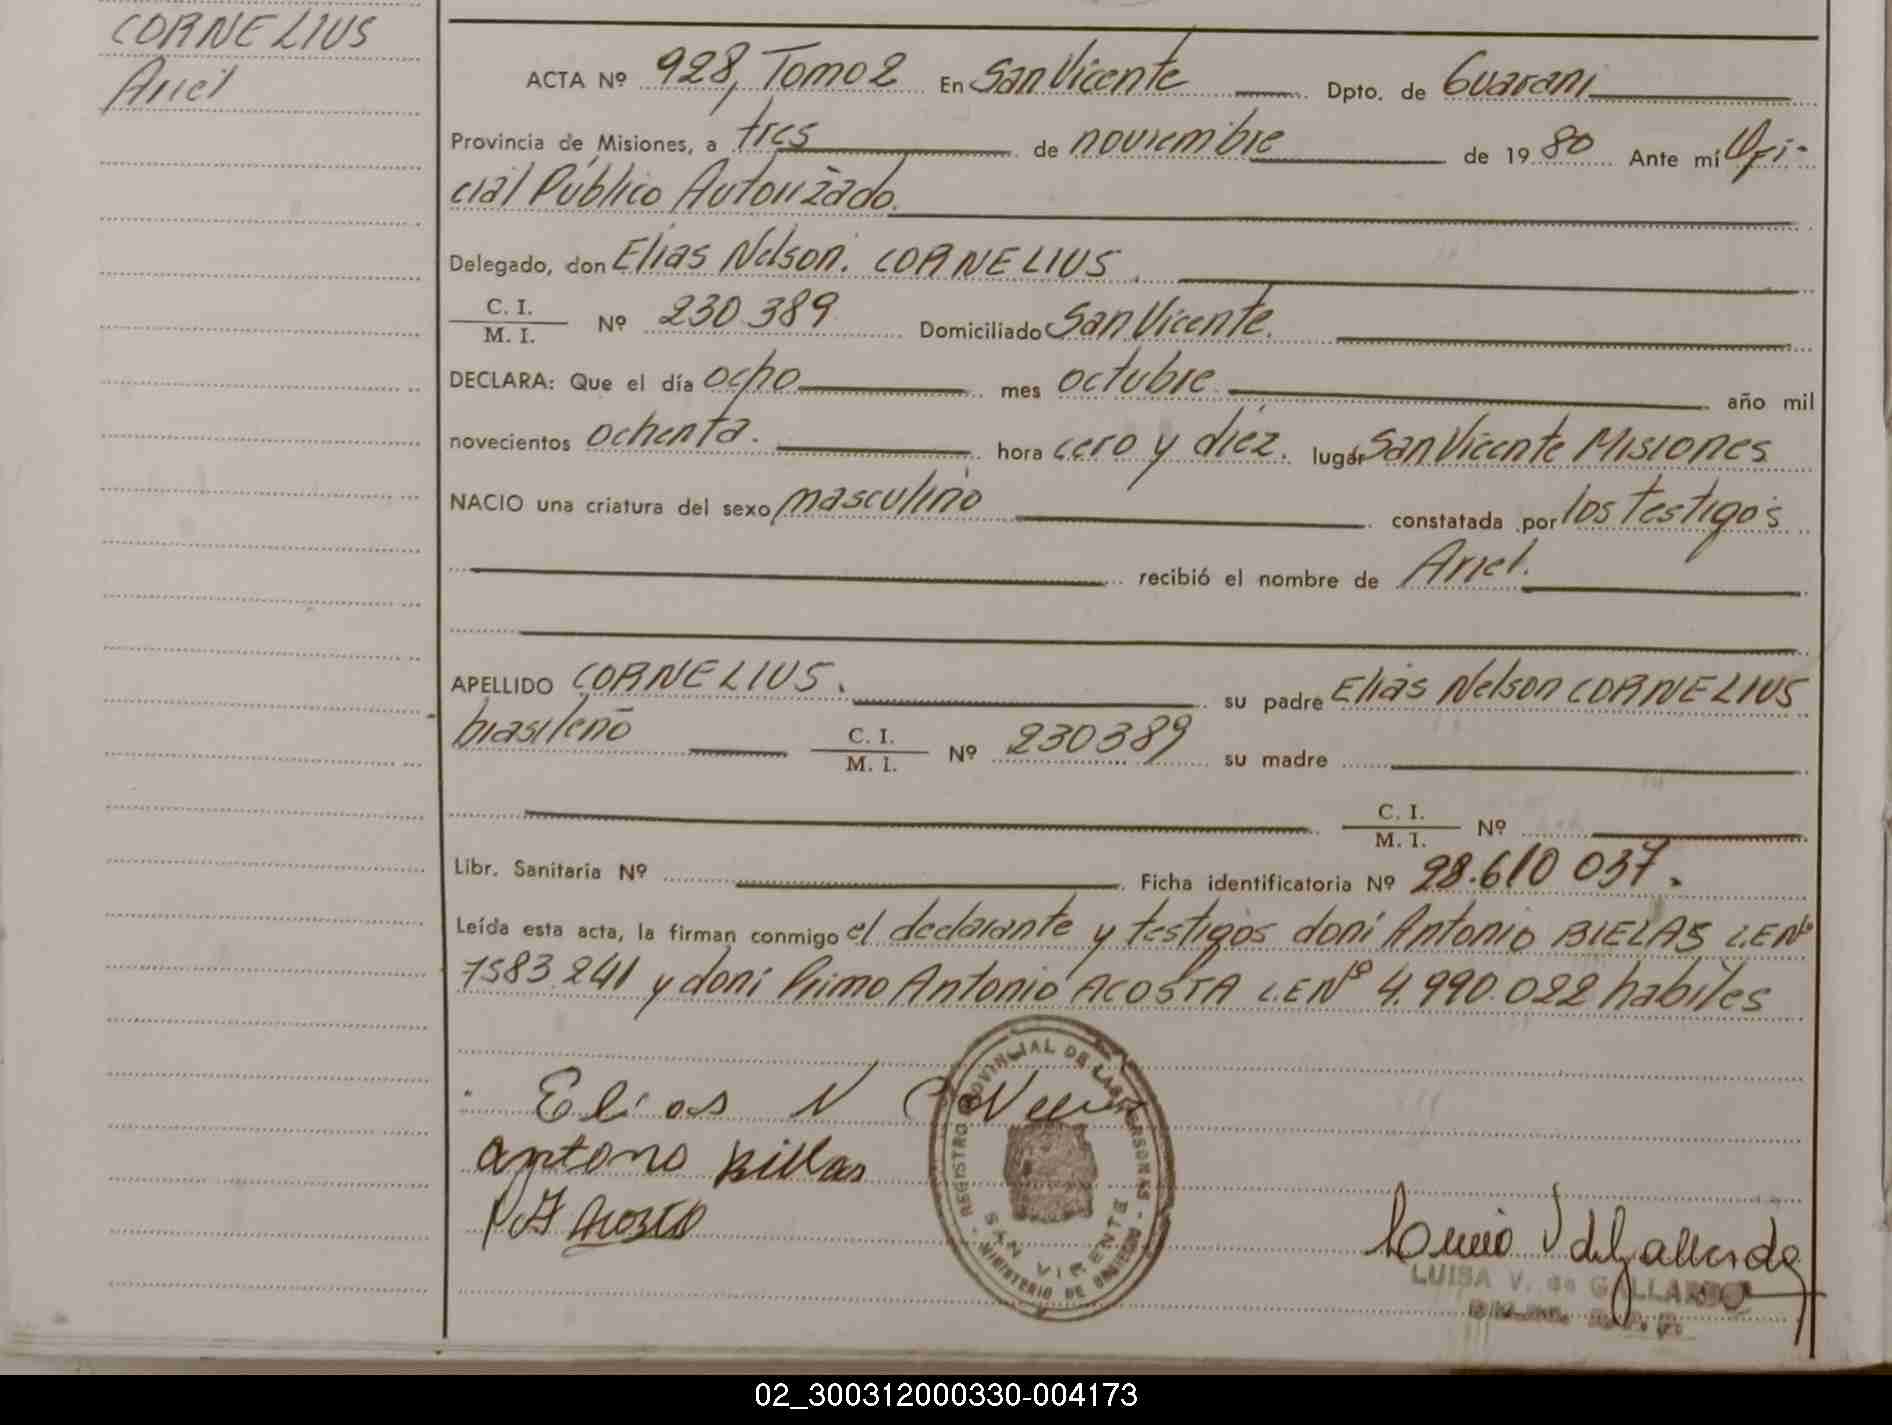 CORNELIUS
Ariel
ACTA Nº 928, Tomo 2 En San Vicente Dpto. de Guarani
Provincia de Misiones, a tres de noviembre de 1980 Ante mí Ofi-
cial Público Autorizado.
Delegado, don Elias Nelson. CORNELIUS.
C. I.
M. I.
Nº 230.389 Domiciliado San Vicente.
DECLARA: Que el día ocho mes octubre año mil
novecientos ochenta. hora cero y diez. lugar San Vicente Misiones
NACIO una criatura del sexo masculino constatada por los testigos
recibió el nombre de Ariel.
APELLIDO CORNELIUS. su padre Elias Nelson CORNELIUS
brasileño C. I.
M. I.
Nº 230389 su madre
C. I.
M. I.
Nº
Libr. Sanitaria Nº Ficha identificatoria Nº 28.610 037.
Leída esta acta, la firman conmigo el declarante y testigos don: Antonio BIELAS L.E Nº
7583.241 y don: Primo Antonio ACOSTA L.E Nº 4.990.022 habiles
Elias N
Antono Billas
Acosta
REGISTRO PROVINCIAL DE LAS PERSONAS
SAN VICENTE
MINISTERIO DE GOBIERNO
Luisa V de Gallardo
LUISA V. de GALLARDO
02_300312000330-004173